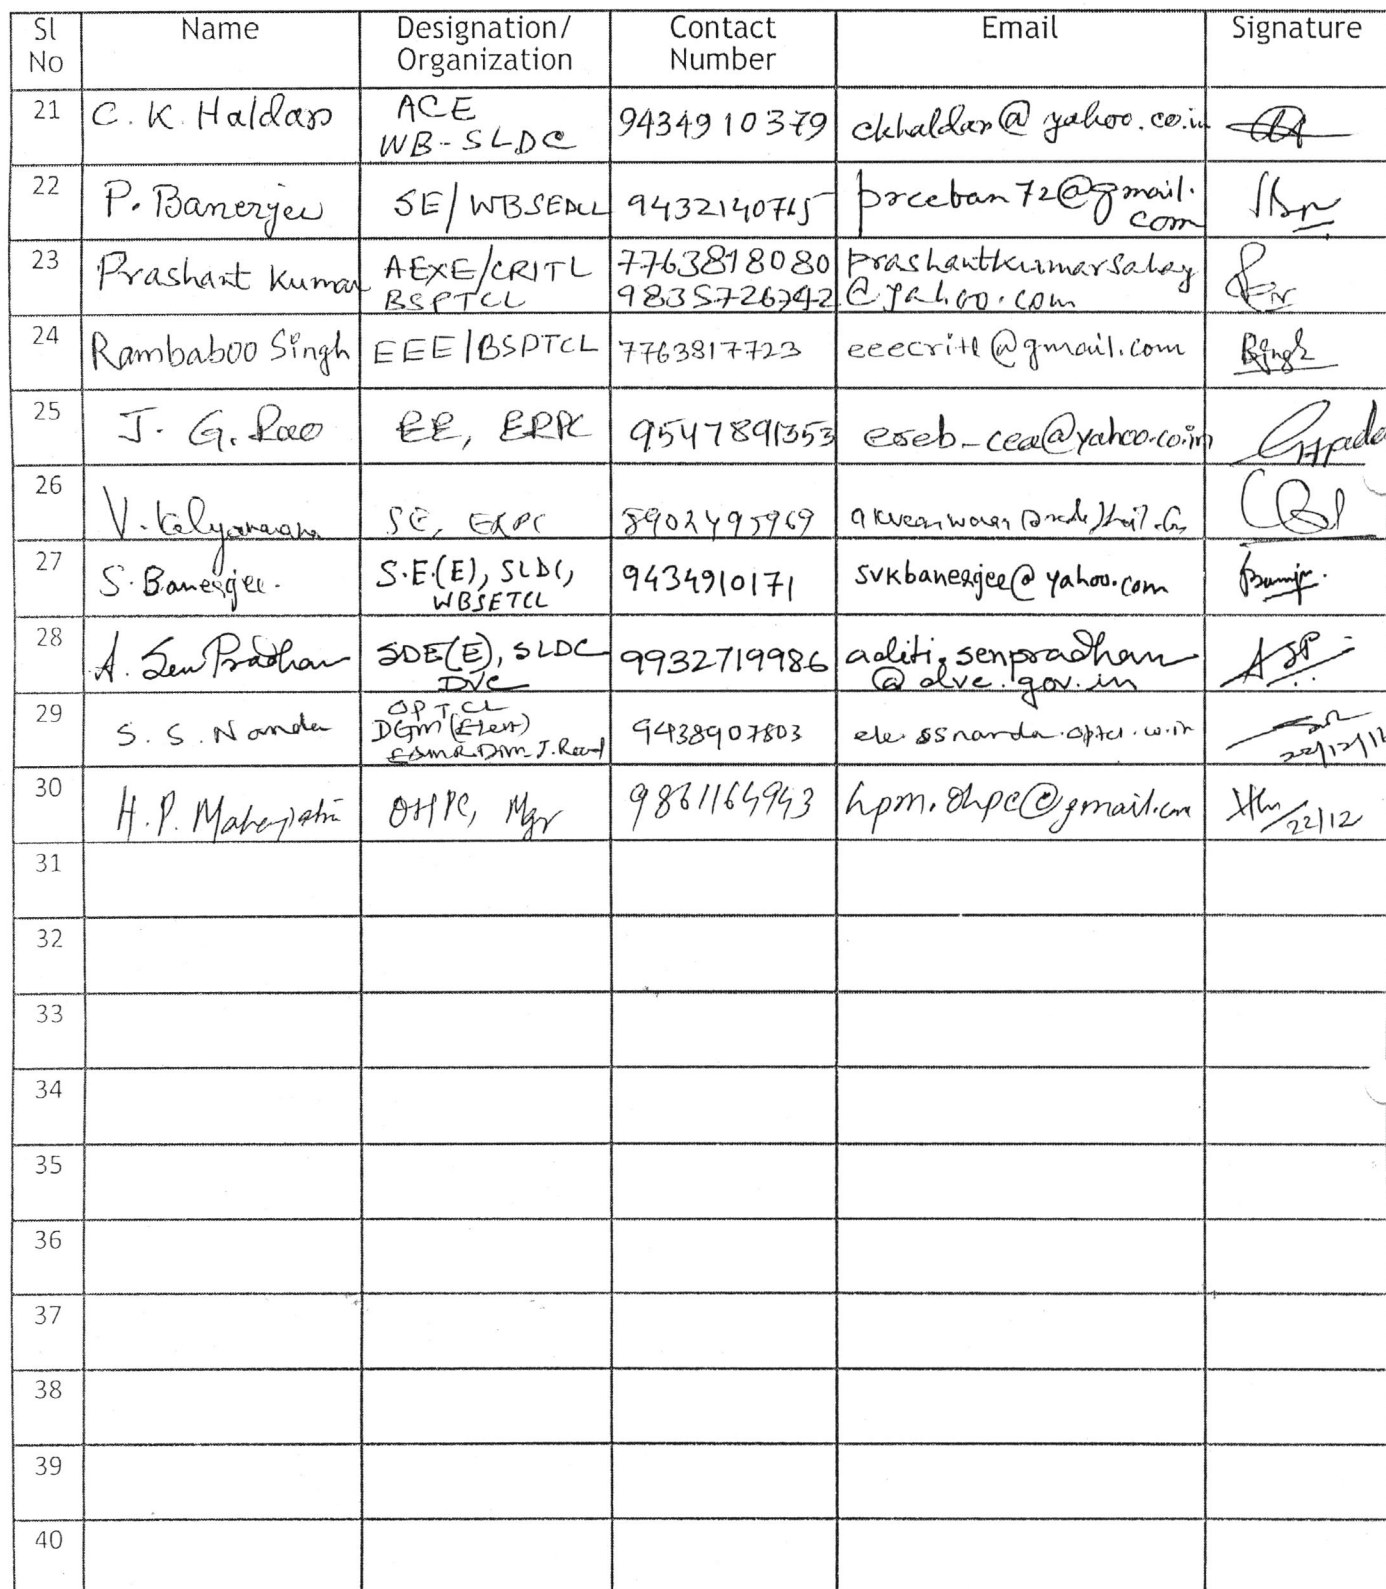 Sl No Name Designation/ Organization Contact Number Email Signature
21 C. K. Haldar ACE WB-SLDC 9434910379 ckhaldar@yahoo.co.in
22 P. Banerjee SE/WBSEDCL 9432140715 preeban72@gmail.com
23 Prashant Kumar AEXE/CRITL BSPTCL 7763818080 9835726742 prashantkumarsahay@yahoo.com
24 Rambaboo Singh EEE/BSPTCL 7763817723 eeecritl@gmail.com
25 J. G. Rao EE, ERPC 9547891353 ereb_cea@yahoo.co.in
26 V. Kalyanaraman SE, ERPC 8902495969
27 S. Banerjee. S.E.(E), SLDC, WBSETCL 9434910171 svkbanerjee@yahoo.com
28 A. Sen Pradhan SDE(E), SLDC DVC 9932719986 aditi.senpradhan@dvc.gov.in ASP
29 S. S. Nanda OPTCL DGM (Elect) 9438907803 ele.ssnanda.optcl.co.in 22/12/16
30 H. P. Mahapatra OHPC, Mgr 9861164943 hpm.ohpc@gmail.com 22/12
31
32
33
34
35
36
37
38
39
40